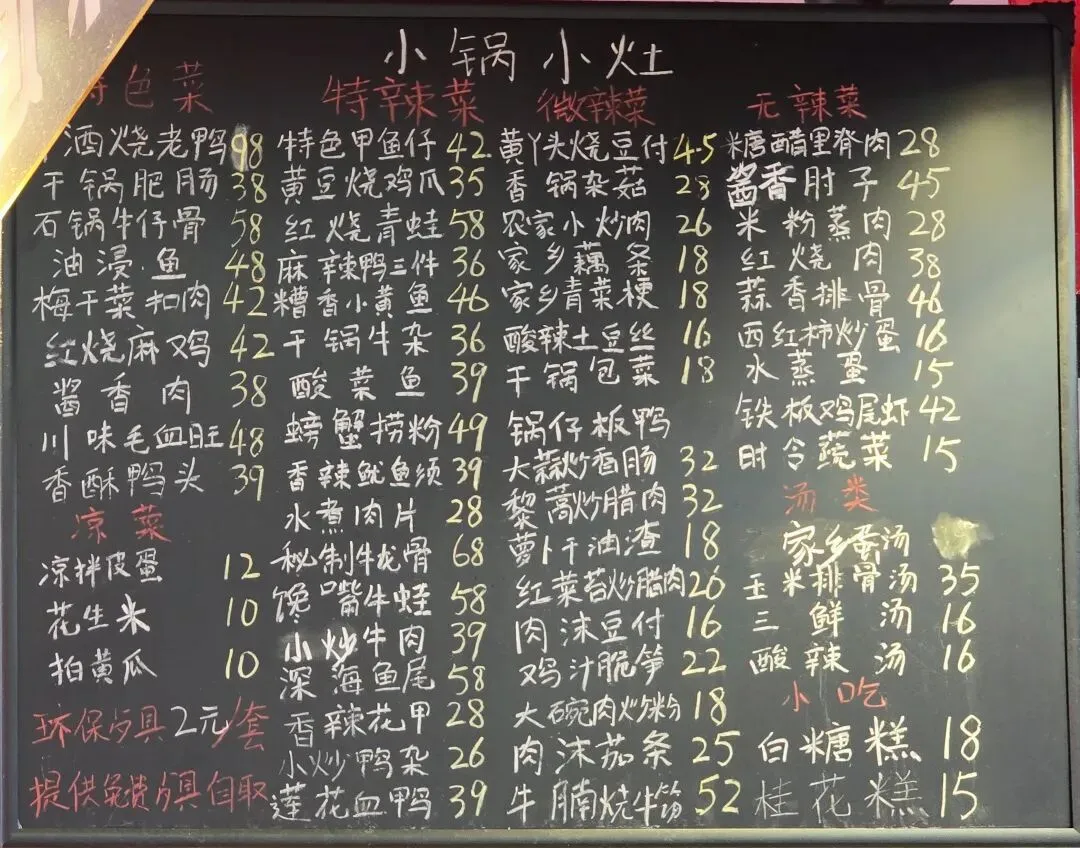 小锅小灶
特色菜
酒烧老鸭 98
干锅肥肠 38
石锅牛仔骨 58
油浸鱼 48
梅干菜扣肉 42
红烧麻鸡 42
酱香肉 38
川味毛血旺 48
香酥鸭头 39
凉菜
凉拌皮蛋 12
花生米 10
拍黄瓜 10
环保占具2元/套
提供免费占具自取
特辣菜
特色甲鱼仔 42
黄豆烧鸡爪 35
红烧青蛙 58
麻辣鸭三件 36
糟香小黄鱼 46
干锅牛杂 36
酸菜鱼 39
螃蟹捞粉 49
香辣鱿鱼须 39
水煮肉片 28
秘制牛龙骨 68
馋嘴牛蛙 58
小炒牛肉 39
深海鱼尾 58
香辣花甲 28
小炒鸭杂 26
莲花血鸭 39
微辣菜
黄丫头烧豆付 45
香锅杂菇 28
农家小炒肉 26
家乡藕条 18
家乡青菜梗 18
酸辣土豆丝 16
干锅包菜 18
锅仔板鸭
大蒜炒香肠 32
黎蒿炒腊肉 32
萝卜干油渣 18
红菜苔炒腊肉 26
肉沫豆付 16
鸡汁脆笋 22
大碗肉炒粉 18
肉沫茄条 25
牛腩烧牛筋 52
无辣菜
糖醋里脊肉 28
酱香肘子 45
米粉蒸肉 28
红烧肉 38
蒜香排骨 46
西红柿炒蛋 16
水蒸蛋 15
铁板鸡尾虾 42
时令蔬菜 15
汤类
家乡蛋汤
玉米排骨汤 35
三鲜汤 16
酸辣汤 16
小吃
白糖糕 18
桂花糕 15